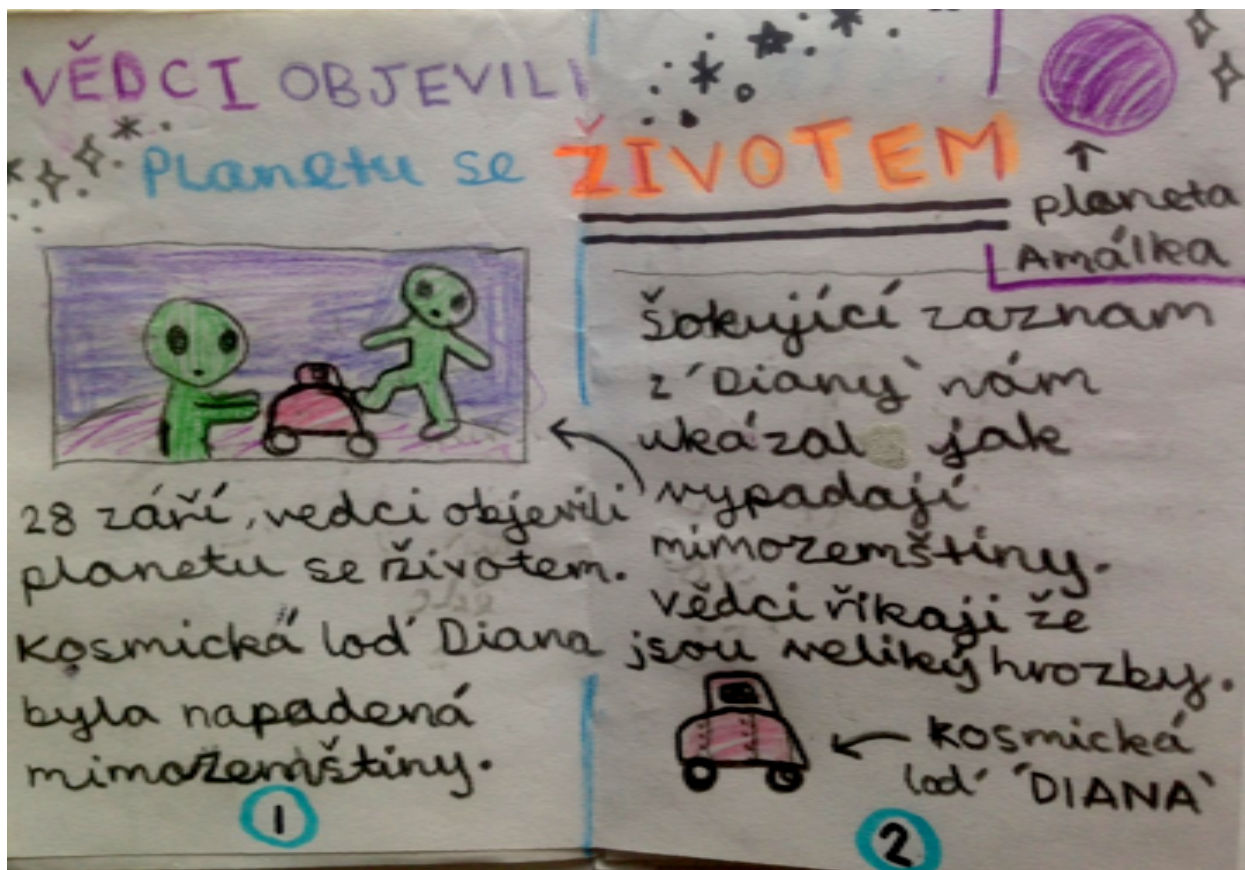 VĚDCI OBJEVILI
Planetu se ŽIVOTEM
28 září, vedci objevili
planetu se životem.
Kosmická loď Diana
byla napadená
mimozemštiny.
1
planeta
Amálka
šokující zaznam
z 'Diany' nám
ukázal jak
vypadají
mimozemštiny.
vědci říkaji že
jsou veliký hrozby.
kosmická
loď 'DIANA'
2